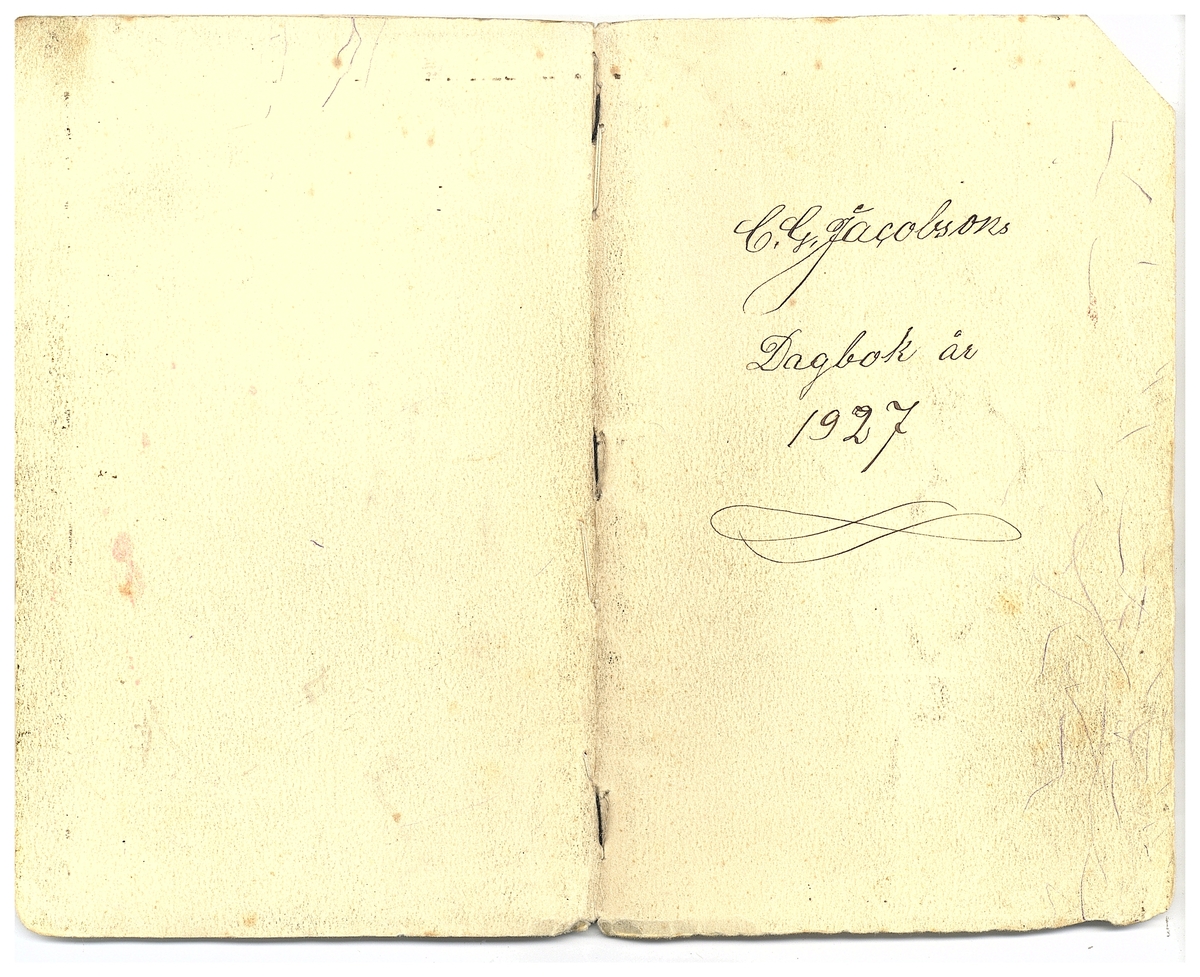 C. G. Jacobsons
Dagbok år
1927